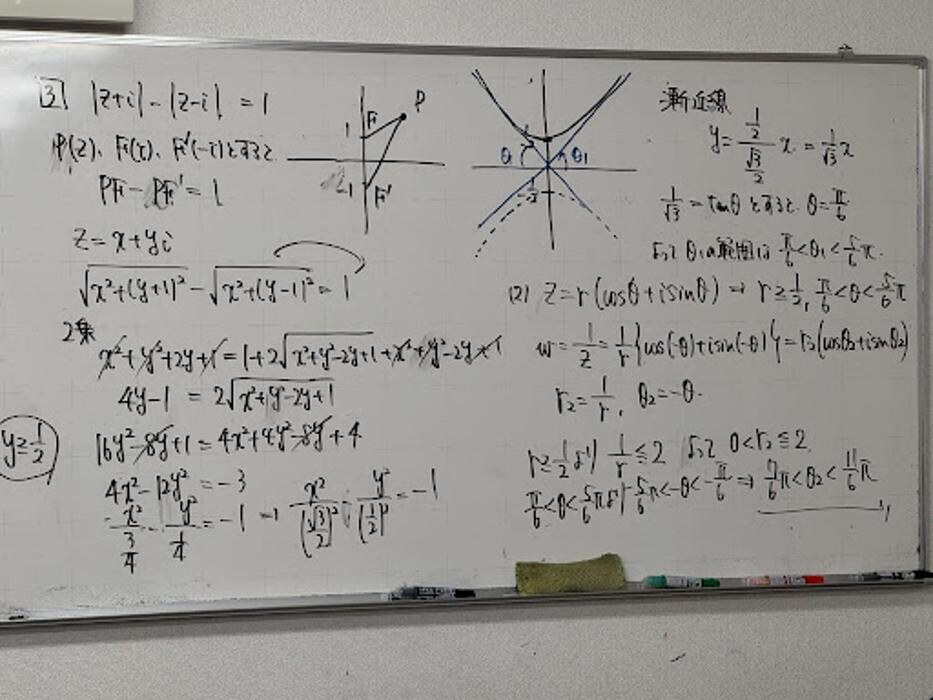 3 |z+i| - |z-i| = 1
P(z)、F(i)、F'(-i)とすると
PF - PF' = 1
z = x + yi
√x²+(y+1)² - √x²+(y-1)² = 1
2乗
x²+y²+2y+1 = 1+2√x²+y²-2y+1 + x²+y²-2y+1
4y-1 = 2√x²+y²-2y+1
16y²-8y+1 = 4x²+4y²-8y+4
y≧1/2
4x²-12y² = -3
x²/(3/4) - y²/(1/4) = -1 → x²/(√3/2)² - y²/(1/2)² = -1
P
1 F
-1 F'
θ θ1
-1/2
漸近線
y = (1/2)/(√3/2) x = 1/√3 x
1/√3 = tanθ とすると θ = π/6
よって θ1の範囲は π/6 < θ1 < 5/6 π.
(2) z = r(cosθ+isinθ) → r≧1/2, π/6 < θ < 5/6 π
w = 1/z = 1/r {cos(-θ)+isin(-θ)} = r2(cosθ2+isinθ2)
r2 = 1/r, θ2 = -θ.
r≧1/2より 1/r ≦ 2 よって 0 < r2 ≦ 2
π/6 < θ < 5/6 πより -5/6 π < -θ < -π/6 → 7/6 π < θ2 < 11/6 π